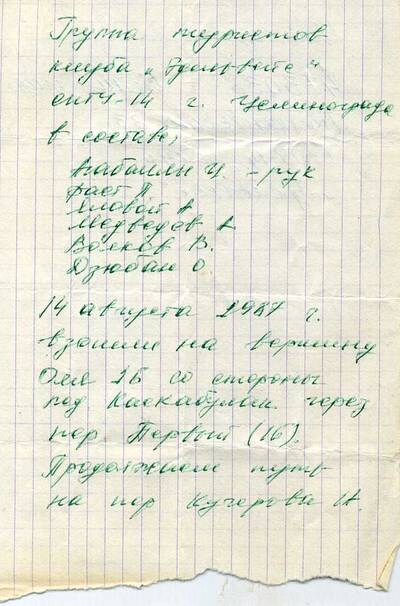 Группа туристов
клуба "Эдельвейс"
СПТУ-14 г. Целинограда
в составе:
Агабалян Ч. - рук
Фаст П
Яловой А
Медведев А
Волков В.
Дзюбан О.
14 августа 1987 г.
взошли на вершину
Оля 2Б со стороны
лед Каскабулак через
пер Первый (1Б).
Продолжаем путь
на пер Кучерова 1А